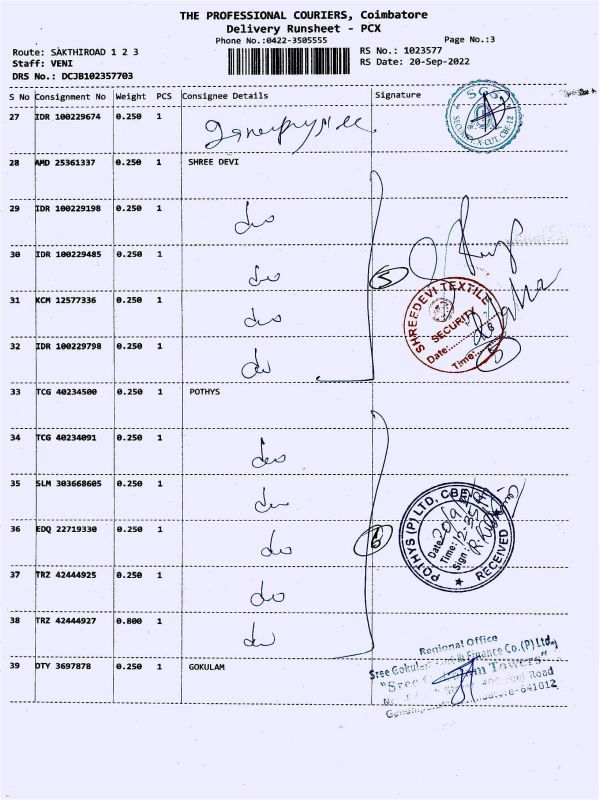 THE PROFESSIONAL COURIERS, Coimbatore
Delivery Runsheet - PCX
Phone No.:0422-3505555
Page No.:3
Route: SAKTHIROAD 1 2 3
RS No.: 1023577
Staff: VENI
RS Date: 20-Sep-2022
DRS No.: DCJB102357703
S No Consignment No Weight PCS Consignee Details Signature
27 IDR 100229674 0.250 1
SECURITY X CUT. CBE-12
28 AMD 25361337 0.250 1 SHREE DEVI
29 IDR 100229198 0.250 1 do
30 IDR 100229485 0.250 1 do
5
31 KCM 12577336 0.250 1 do
SHREEDEVI TEXTILE
SECURITY
Date:
Time:
5
32 IDR 100229798 0.250 1 do
33 TCG 40234500 0.250 1 POTHYS
34 TCG 40234091 0.250 1 do
35 SLM 303668605 0.250 1 do
POTHYS (P) LTD, CBE
Date 20/9/
Time:
Sign:
RECEIVED
36 EDQ 22719330 0.250 1 do
6
37 TRZ 42444925 0.250 1 do
38 TRZ 42444927 0.800 1 do
Regional Office
Sree Gokulam & Finance Co.(P) Ltd.,
Towers"
39 DTY 3697878 0.250 1 GOKULAM
Road
-641012